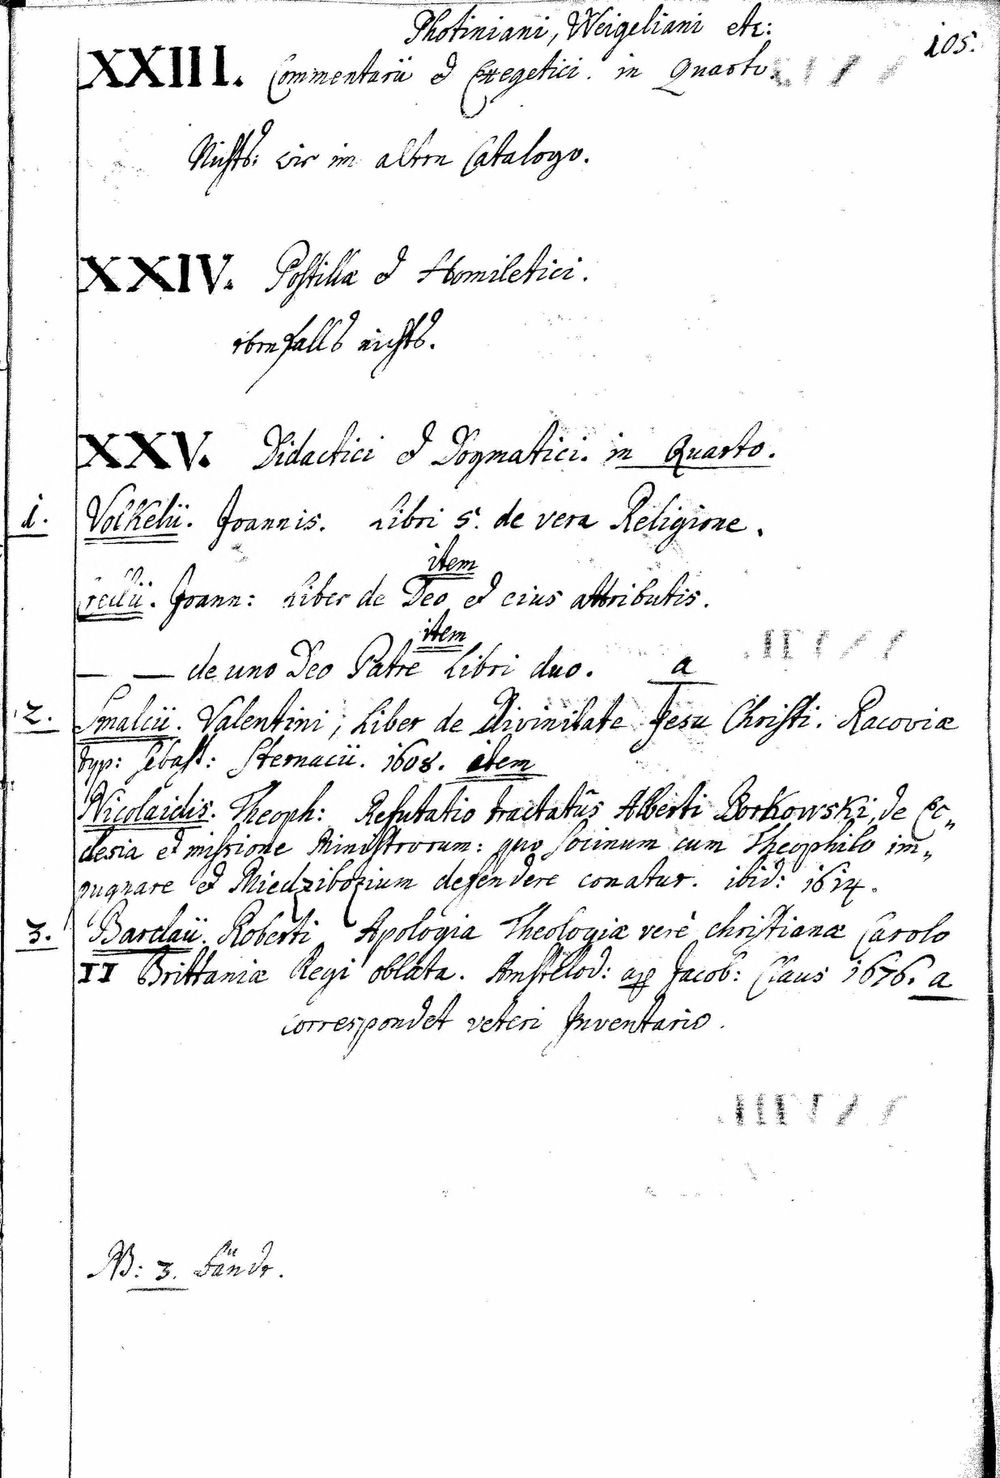 Photiniani, Weigeliani etc:
105.
XXIII. Commentarii et Exegetici. in Quarto.
Nichts: wie im alten Catalogo.
XXIV. Postillæ et Homiletici.
ebenfalls nichts.
XXV. Didactici et Dogmatici. in Quarto.
1. Volkelii. Joannis. Libri 5. de vera Religione.
item
Crellii. Joann: Liber de Deo et eius attributis.
item
— — de uno Deo Patre Libri duo. a
2. Smalcii. Valentini, Liber de Divinitate Jesu Christi. Racoviæ
typ: Sebast: Sternacii. 1608. item
Nicolaidis. Theoph: Refutatio tractatûs Alberti Borkowski, de Ec„
clesia et missione Ministrorum: quo Socinum cum Theophilo im„
pugnare et Miedzibozium defendere conatur. ibid: 1614.
3. Barclaii. Roberti Apologia Theologiæ verè christianæ Carolo
II Brittaniæ Regi oblata. Amstelod: ap Jacob: Claus 1676. a
correspondet veteri Inventario.
NB: 3. Bände.